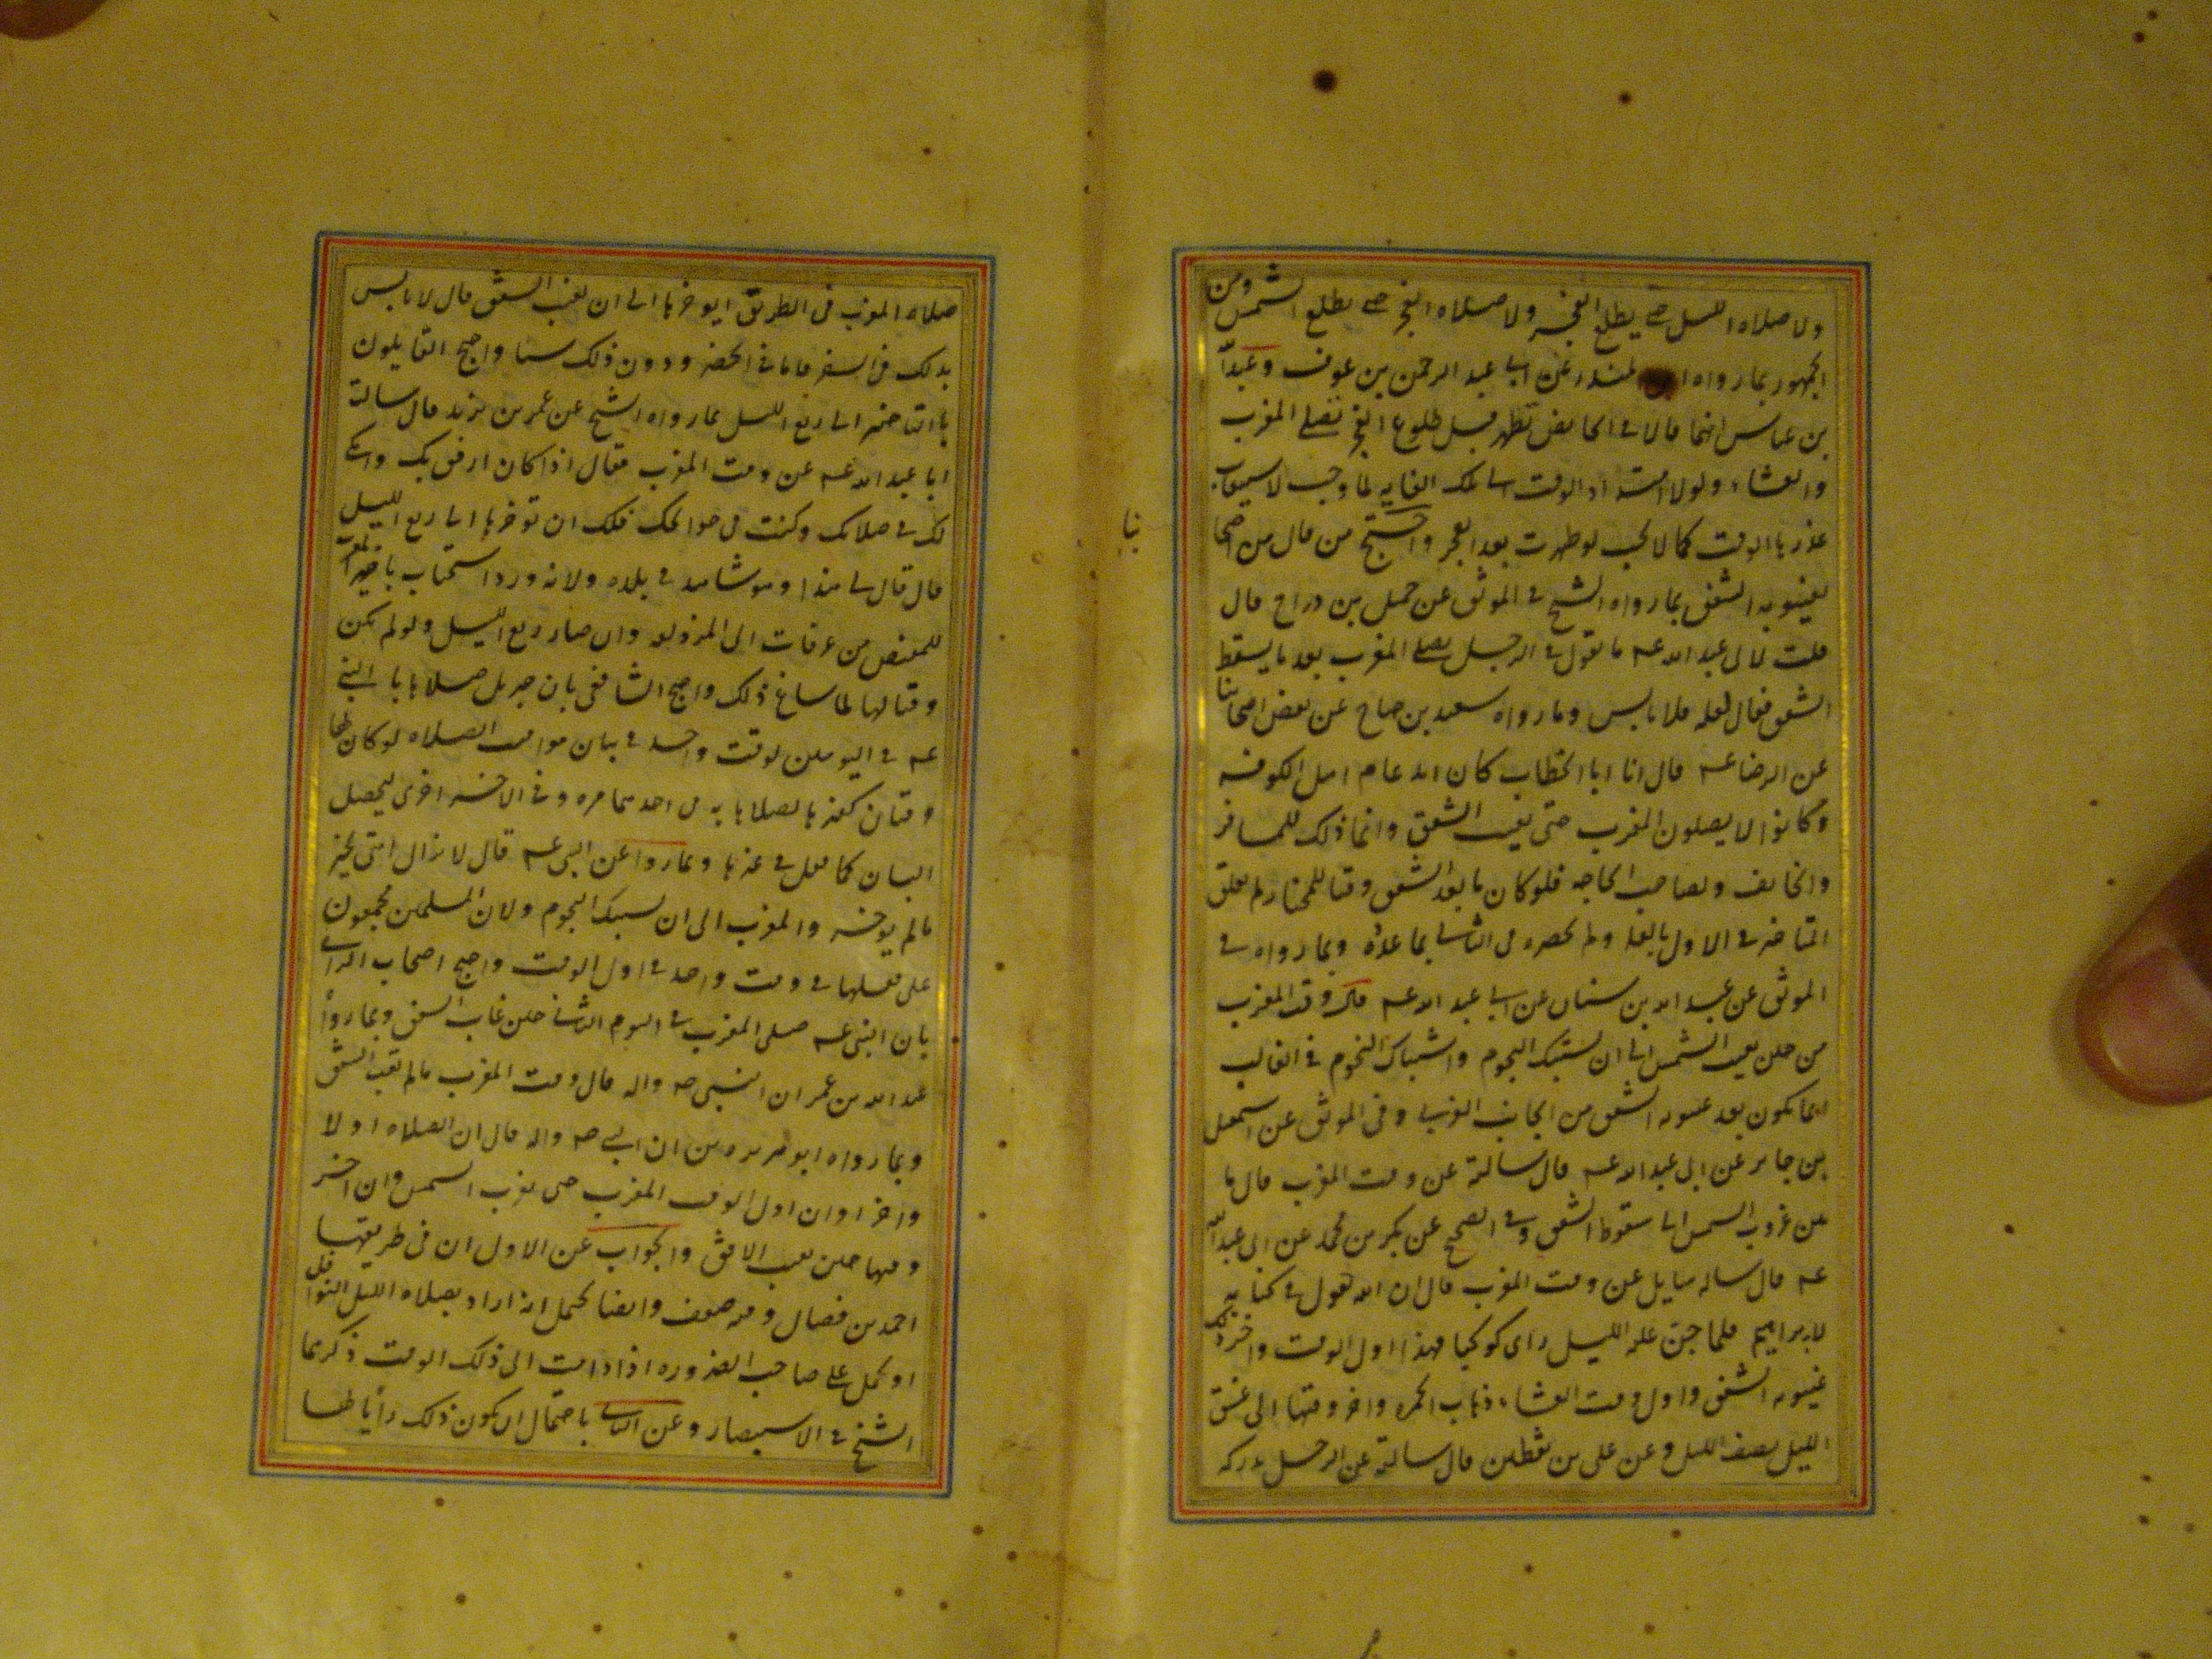 ولا صلاه الليل حتى يطلع الفجر ولا صلاه الفجر حتى يطلع الشمس ومن
الجمهور بما رواه المنذر عن ابي عبد الرحمن بن عوف وعبدا
بن عباس انهما قالا في الحائض تطهر قبل طلوع الفجر تصلي المغرب
والعشاء ولولا امتداد الوقت الى تلك الغايه لما وجب لاستيعاب
عذرها الوقت كما لا يجب لو طهرت بعد الفجر واحتج من قال من اصحا
بنا
بغيبوبه الشفق بما رواه الشيخ في الموثق عن جميل بن دراج قال
قلت لابي عبد الله عه ما تقول في الرجل يصلي المغرب بعد ما يسقط
الشفق فقال لعله فلا باس وما رواه سعيد بن جناح عن بعض اصحابنا
عن الرضا عه قال انا ابا الخطاب كان افسد عامه اهل الكوفه
وكانوا لا يصلون المغرب حتى يغيب الشفق وانما ذلك للمسافر
والخايف ولصاحب الحاجه فلو كان ما بعد الشفق وقتا للمختار لم يعلق
التاخير في الاول بالعله ولم يحصره في الثاني بما عده وبما رواه في
الموثق عن عبد الله بن سنان عن ابي عبد الله عه قال وقت المغرب
من حين يغيب الشمس الى ان يشتبك النجوم واشتباك النجوم في الغالب
انما يكون بعد غيبوبه الشفق من الجانب الغربي وفي الموثق عن اسمعيل
بن جابر عن ابي عبد الله عه قال سالته عن وقت المغرب قال ما
بين غروب الشمس الى سقوط الشفق وفي الصحيح عن بكر بن محمد عن ابي عبد الله
عه قال ساله سايل عن وقت المغرب قال ان الله يقول في كتابه
لابراهيم فلما جن عليه الليل راى كوكبا فهذا اول الوقت واخر ذلك
غيبوبه الشفق واول وقت العشاء ذهاب الحمره واخر وقتها الى غسق
الليل نصف الليل وعن علي بن يقطين قال سالته عن الرجل يدركه
صلاه المغرب في الطريق ايوخرها الى ان يغيب الشفق قال لا باس
بذلك في السفر فاما في الحضر فدون ذلك شيئا واحتج القايلون
بالتاخير الى ربع الليل بما رواه الشيخ عن عمر بن يزيد قال سالت
ابا عبد الله عه عن وقت المغرب فقال اذا كان ارفق بك وامكن
لك في صلاتك وكنت في حوائجك فلك ان توخرها الى ربع الليل
قال قال لي هذا وهو شاهد في بلده ولانه ورد استحباب تاخير المغرب
للمفيض من عرفات الى المزدلفه وان صار ربع الليل ولو لم يكن
وقتا لها لما ساغ ذلك واحتج الشافعي بان جبريل صلاها بالنبي
عه في اليومين لوقت واحد في بيان مواقيت الصلاه لو كان لها
وقتان كغيرها لصلاها به في احديهما مره وفي الاخر اخرى ليحصل
البيان كما فعل في غيرها وبما روا عن النبي عه قال لا يزال امتي بخير
ما لم يوخر المغرب الى ان يشتبك النجوم ولان المسلمين مجمعون
على فعلها في وقت واحد في اول الوقت واحتج اصحاب الراي
بان النبي عه صلى المغرب في اليوم الثاني حين غاب الشفق وبما رواه
عبد الله بن عمر ان النبي صه واله قال وقت المغرب ما لم يغب الشفق
وبما رواه ابو هريره من ان النبي صه واله قال ان للصلاه اولا
واخرا وان اول الوقت المغرب حين يغرب الشمس وان اخر
وقتها حين يغيب الافق والجواب عن الاول ان في طريقها
احمد بن فضال وفيه ضعف وايضا يحتمل انه اراد بصلاه الليل النوافل
او يحمل على صاحب الضروره اذا دامت الى ذلك الوقت ذكرهما
الشيخ في الاستبصار وعن الثاني باحتمال ان يكون ذلك رايا لهما